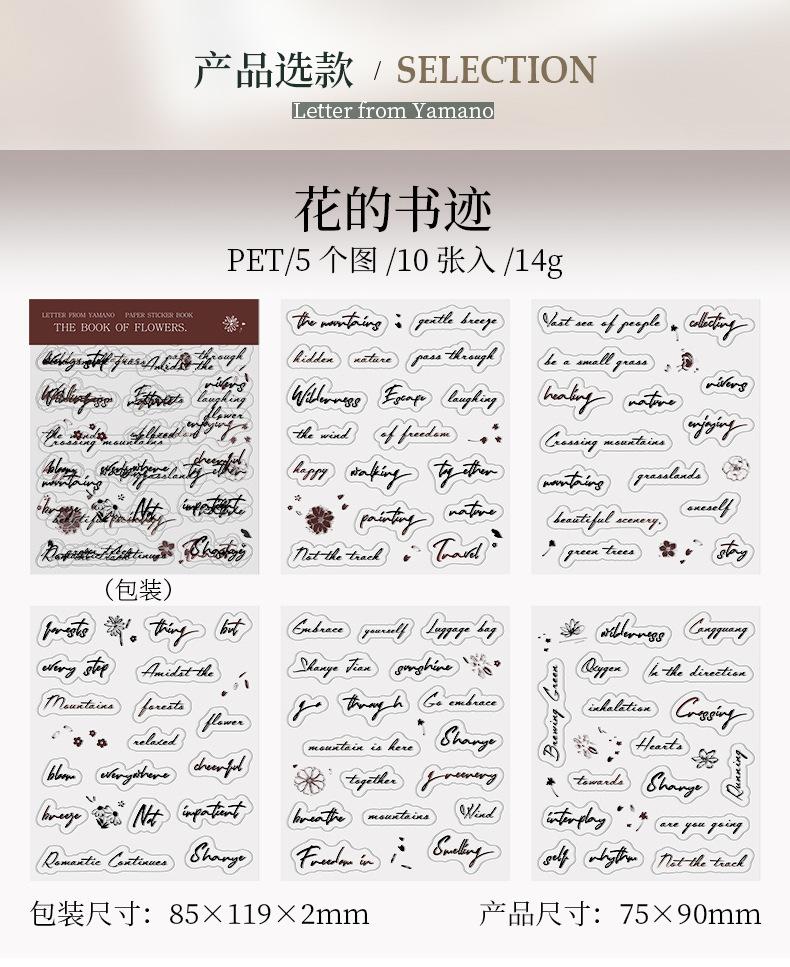 产品选款 / SELECTION
Letter from Yamano
花的书迹
PET/5 个图 /10 张入 /14g
LETTER FROM YAMANO PAPER STICKER BOOK
THE BOOK OF FLOWERS.
(包装)
the mountains gentle breeze
hidden nature pass through
Wilderness Escape laughing
the wind of freedom
happy walking together
painting nature
Not the track Travel
Vast sea of people collecting
be a small grass
healing nature rivers
Crossing mountains enjoying
mountains grasslands
beautiful scenery. oneself
green trees stay
forests thing but
every step Amidst the
Mountains forests
relaxed flower
bloom everywhere cheerful
breeze Not impatient
Romantic Continues Shanye
Embrace yourself Luggage bag
Shanye Tian sunshine
go through Go embrace
mountain is here Shanye
together greenery
breathe mountains Wind
Freedom in Smelling
wilderness Cangguang
Oxygen In the direction
Brewing Green
inhalation Crossing
Hearts
towards Shanye
Running
interplay are you going
self rhythm Not the track
包装尺寸：85×119×2mm
产品尺寸：75×90mm